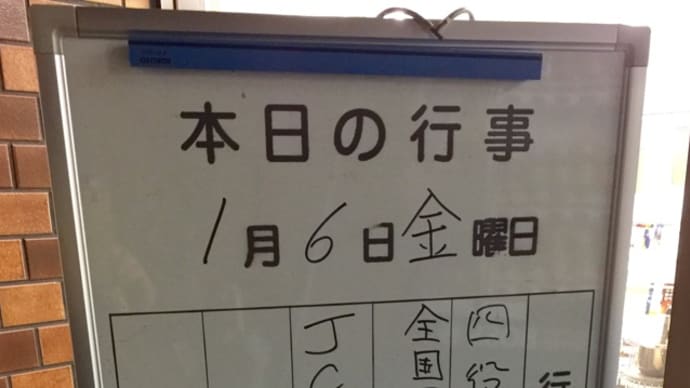 本日の行事
1月6日金曜日
行
四役
全国
J